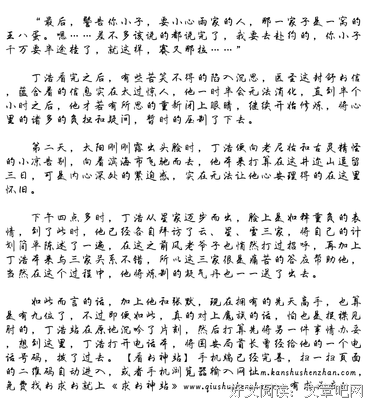 “最后，警告你小子，要小心雨家的人，那一家子是一窝的
王八蛋。嗯……差不多该说的都说完了，我要去赴约的，你小子
千万要半途挂了，就这样，赛又那拉……”
丁浩看完之后，有些苦笑不得的陷入沉思，医圣这封书
信，蕴含着的信息实在太过惊人，他一时半会无法消化，直到半个
小时之后，他才若有所思的重新闭上眼睛，继续开始修炼，将心
里的诸多的负担和疑问，暂时的压制了下去。
第二天，太阳刚刚露出头脸时，丁浩便向老尼姑和古灵精怪
的小凉告别，向着滨海市飞驰而去，他本来打算在这井迩山逗留
三日，可是内心深处的紧迫感，实在无法让他心安理得的在这里
怀旧。
下午四点多时，丁浩从星家迈步而出，脸上是如释重负的表
情，到了此时，他已经各自拜访了云、星、雪三家，将自己的计
划简单陈述了一遍，在这之前风老爷子也悄然打过招呼，再加上
丁浩本来与三家关系不错，所以这三家很是痛苦的答应帮助他，
当然在这个过程中，他将炼制的凝气丹也一一送了出去。
如此而言的话，加上他和张默，现在拥有的先天高手，也算
是有九位了，不过即便如此，真的对上魔族的话，怕也是捉襟见
肘的，丁浩站在原地沉吟了片刻，然后打算先将另一件事情办妥
，想到这里，丁浩打开电话本，将国安局首长曾经给他的一个电
话号码，拨了过去。【看书神站】手机端已经完善，扫一扫页面
的二维码自动进入，或者手机浏览器输入网址m.kanshushenzhan.com，
免费找书求书就上《求书神站》www.qiushu
好文阅读：文章吧网